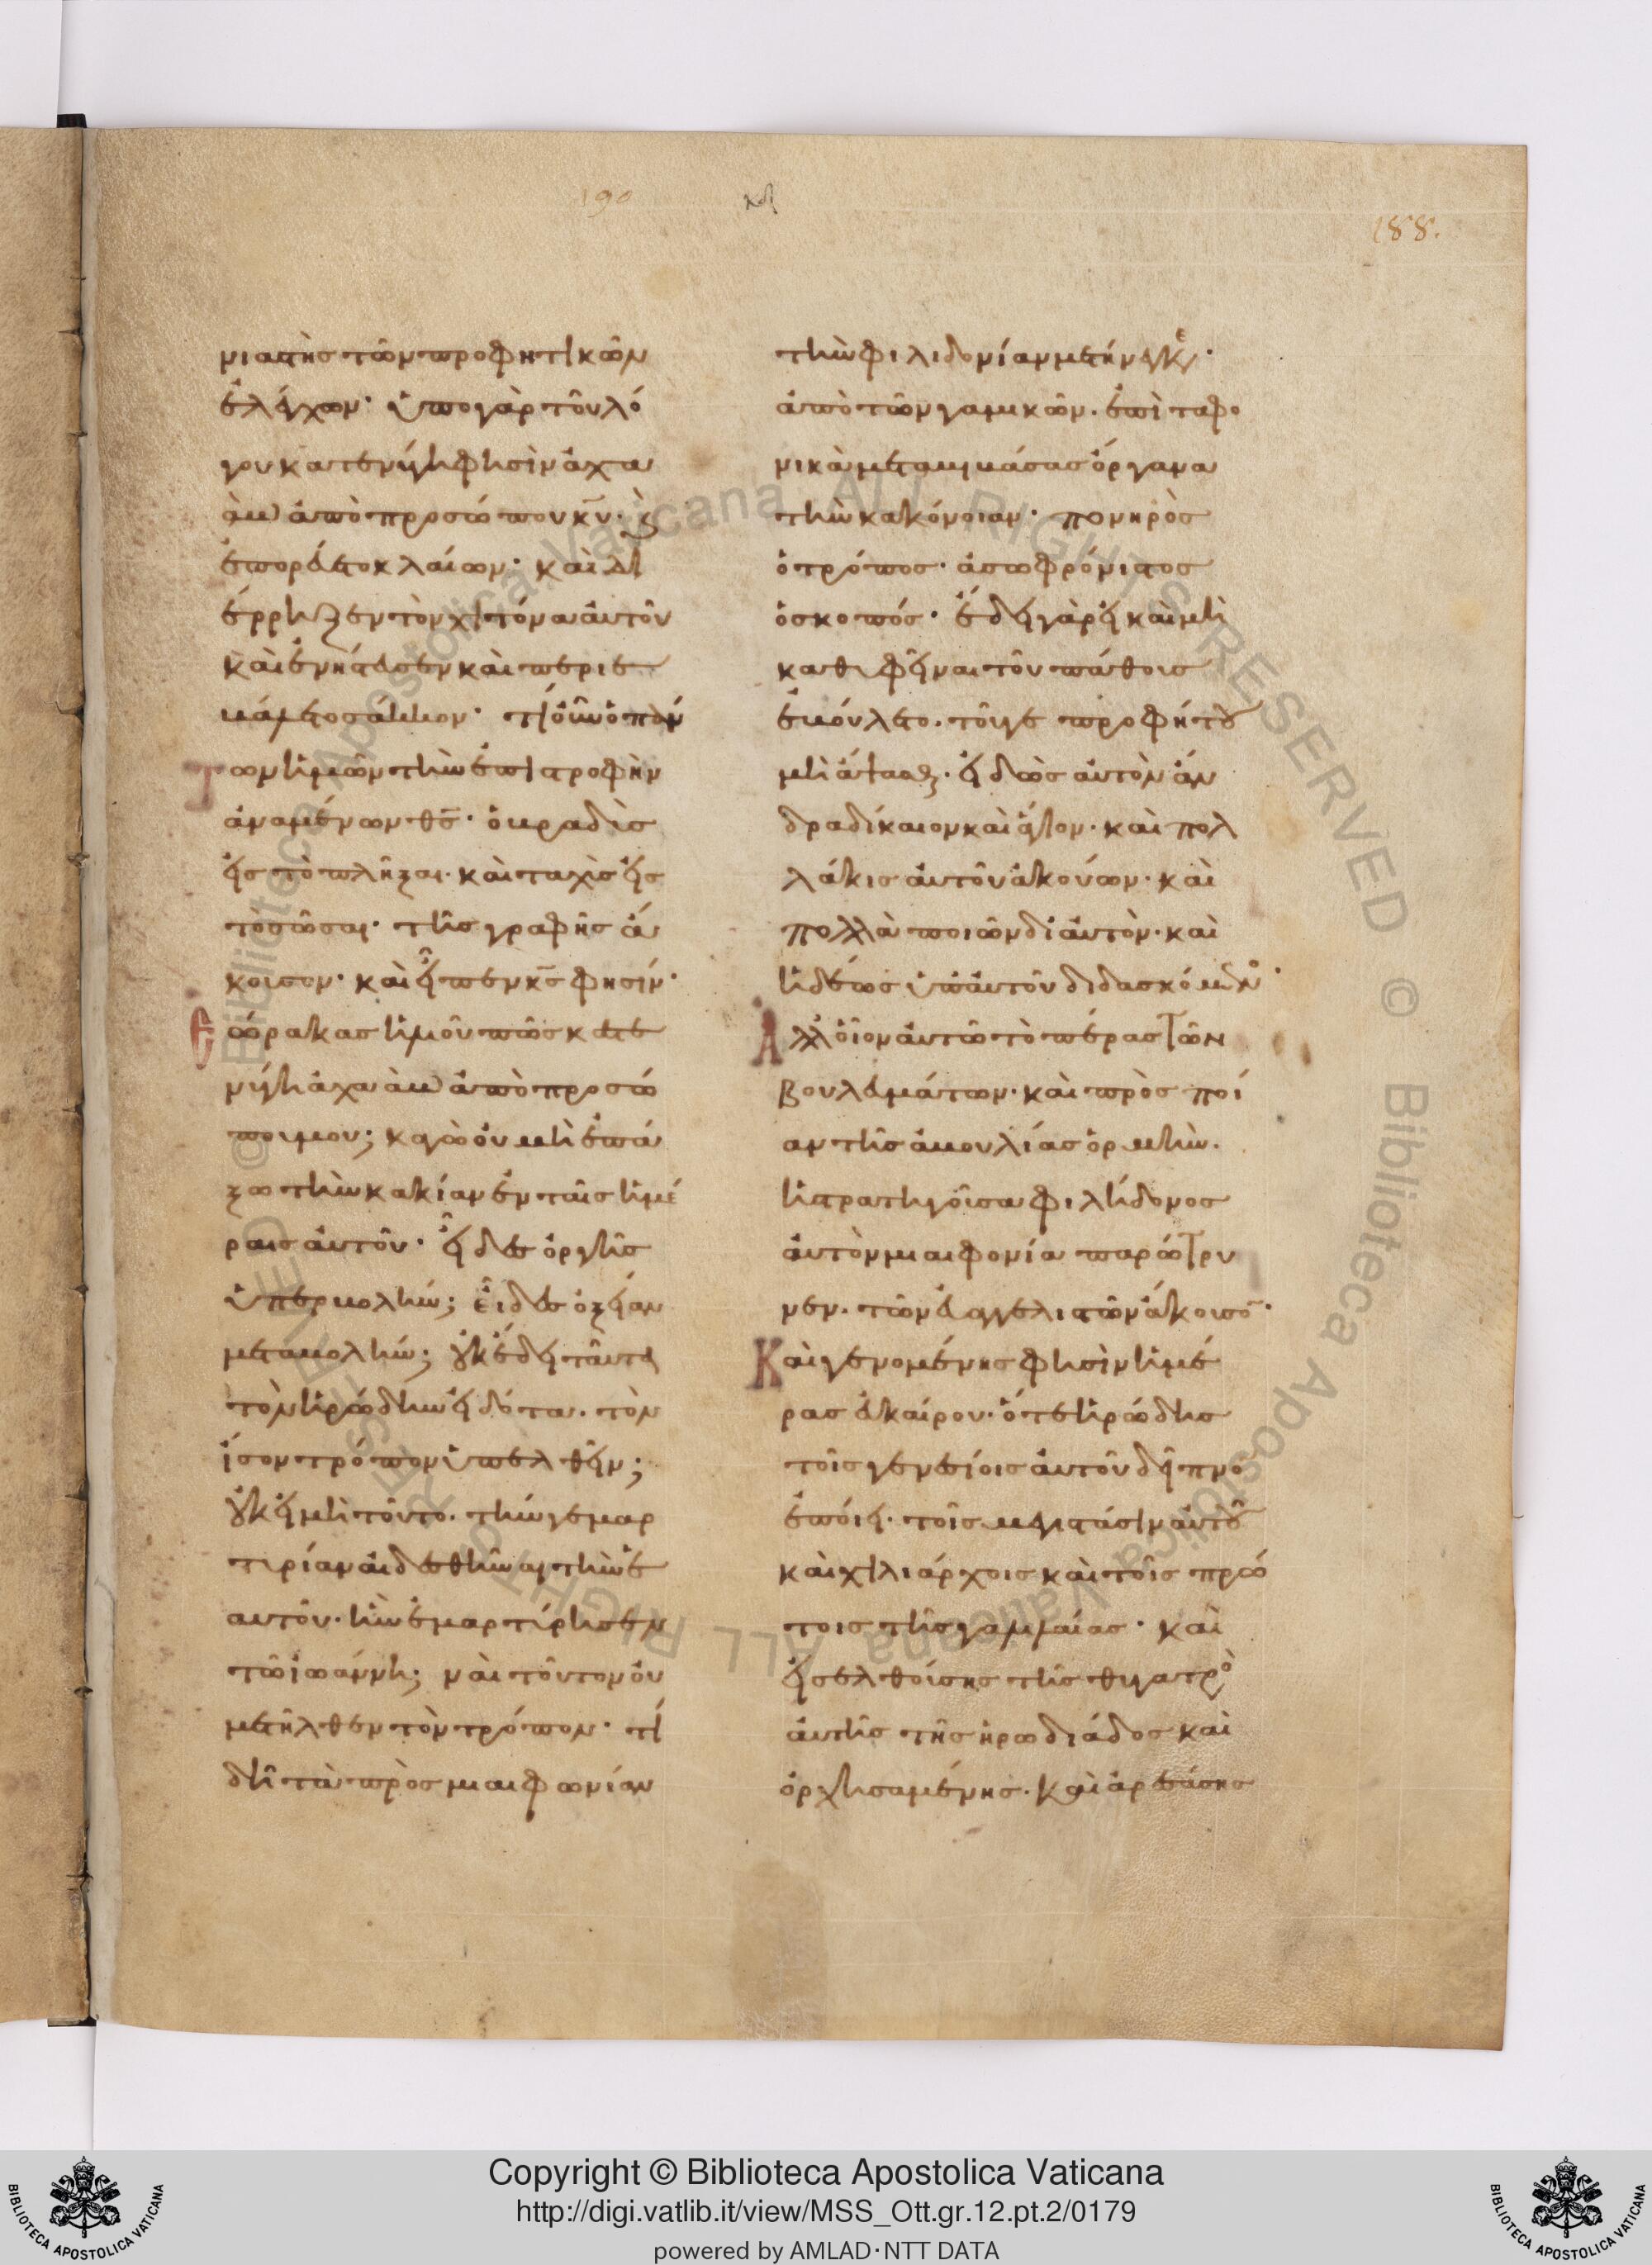 190
188.
νιατῆς τῶν προφητικῶν
ἐλέγχων· ὑπογὰρ τοῦ λό
γου κατενύγη φησὶν ἀχα
ὰμ ἀπὸ προσώπου κ̅υ̅· καὶ
ἐπορεύετο κλαίων· καὶ δι
έρρηξεν τὸν χιτόνα αὐτοῦ
καὶ ἐνήστευσεν καὶ περιε
βάλετο σάκκον· τί οὖν ὁ πάν
των ἡμῶν τὴν ἐπιστροφὴν
ἀναμένων θ̅ς̅· ὁ βραδὶς
εἰς τὸ πλῆξαι· καὶ ταχὶς εἰς
τὸ σῶσαι· τῆς γραφῆς ἄ
κουσον· καὶ εἶπεν κ̅ς̅ φησίν·
Εώρακας ἡμοῦ πῶς κατε
νύγη ἀχαὰμ ἀπὸ προσώ
που μου; καγὼ οὐ μὴ ἐπά
ξω τὴν κακίαν ἐν ταῖς ἡμέ
ραις αὐτοῦ· εἶδες ὀργῆς
ὑπερβολήν; εἶδες ὀξείαν
μεταβολήν; οὐκ ἔδει ταῦτα
τὸν ἡρώδην εἰδότα· τὸν
ἴσον τρόπον ὑπελθεῖν;
οὐκ εἰ μὴ τοῦτο· τήν γε μαρ
τιρίαν αἰδεσθῆναι τὴν ἐ
αυτοῦ· ἣν ἐμαρτίρησεν
τῶ ἰωάννη; ναὶ τοῦτον οὐ
μετῆλθεν τὸν τρόπον· τί
δὴ τὰ πρὸς μιαιφωνίαν
τὴν φιλιδονίαν μετήνεγκε·
ἀπὸ τῶν γαμικῶν· ἐπὶ τα φο
νικὰ μεταβιβάσας ὄργανα
τὴν κακόνοιαν· πονηρὸς
ὁ τρόπος· ἀσωφρόνιστος
ὁ σκοπός· ἔδει γὰρ εἰ καὶ μὴ
καθιφεῖναι τοῦ πάθους
ἐβούλετο· τοῦ γε προφήτου
μὴ ἅψασθαι· εἰδὼς αὐτὸν ἄν
δρα δίκαιον καὶ ἅγιον· καὶ πολ
λάκις αὐτοῦ ἀκούων· καὶ
πολλὰ ποιῶν δι αὐτὸν· καὶ
ἡδέως ὑπ αὐτοῦ διδασκόμενος·
Αλλ οἷον αὐτῶ τὸ πέρας τῶν
βουλευμάτων· καὶ πρὸς ποί
αν τῆς ἀβουλίας ὁρμὴν·
ἡ στρατηγοῖσα φιλήδονος
αὐτὸν μιαιφονία παρώτρυ
νεν· τῶν εὐαγγελιστῶν ἄκουσον·
Καὶ γενομένης φησὶν ἡμέ
ρας εὐκαίρου· ὅτε ἡρώδης
τοῖς γενεσίοις αὐτοῦ δεῖπνο
ἐποίει· τοῖς μεγιστάσιν αὐτοῦ
καὶ χιλιάρχοις καὶ τοῖς πρώ
τοις τῆς γαλιλαίας· καὶ
εἰσελθούσης τῆς θιγατρὸ
αὐτῆς τῆς ἡρωδιάδος καὶ
ὀρχησαμένης· καὶ ἀρεσάσης
Copyright © Biblioteca Apostolica Vaticana
http://digi.vatlib.it/view/MSS_Ott.gr.12.pt.2/0179
powered by AMLAD·NTT DATA
BIBLIOTECA APOSTOLICA VATICANA
BIBLIOTECA APOSTOLICA VATICANA